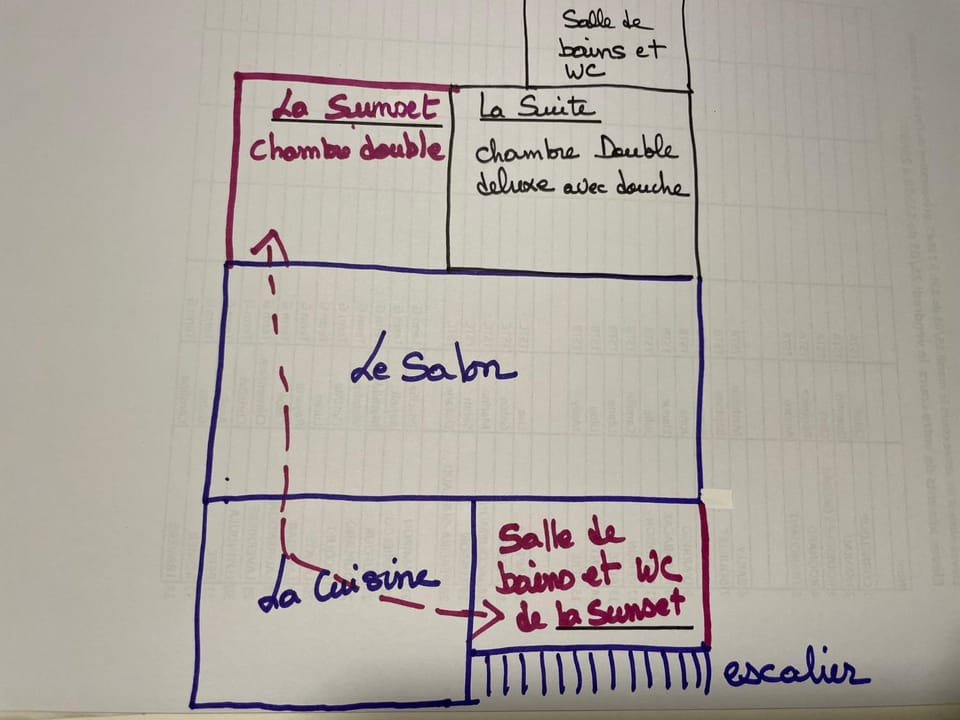 Salle de
bains et
WC
La Sunset
chambre double
La Suite
chambre Double
deluxe avec douche
Le Salon
La Cuisine
Salle de
bains et WC
de la Sunset
escalier